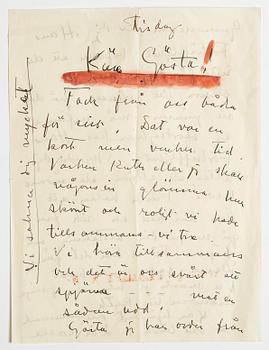 Tisdag
Kära Gösta!
Tack från oss båda
för sist. Det var en
kort men vacker tid.
Varken Ruth eller jag skall
någonsin glömma hur
skönt och roligt vi hade
tillsammans - vi tre.
Vi höra tillsammans
och det är oss svårt att
spjärna mot en
sådan udd!
Gösta jag har order från
Vi sakna dig mycket